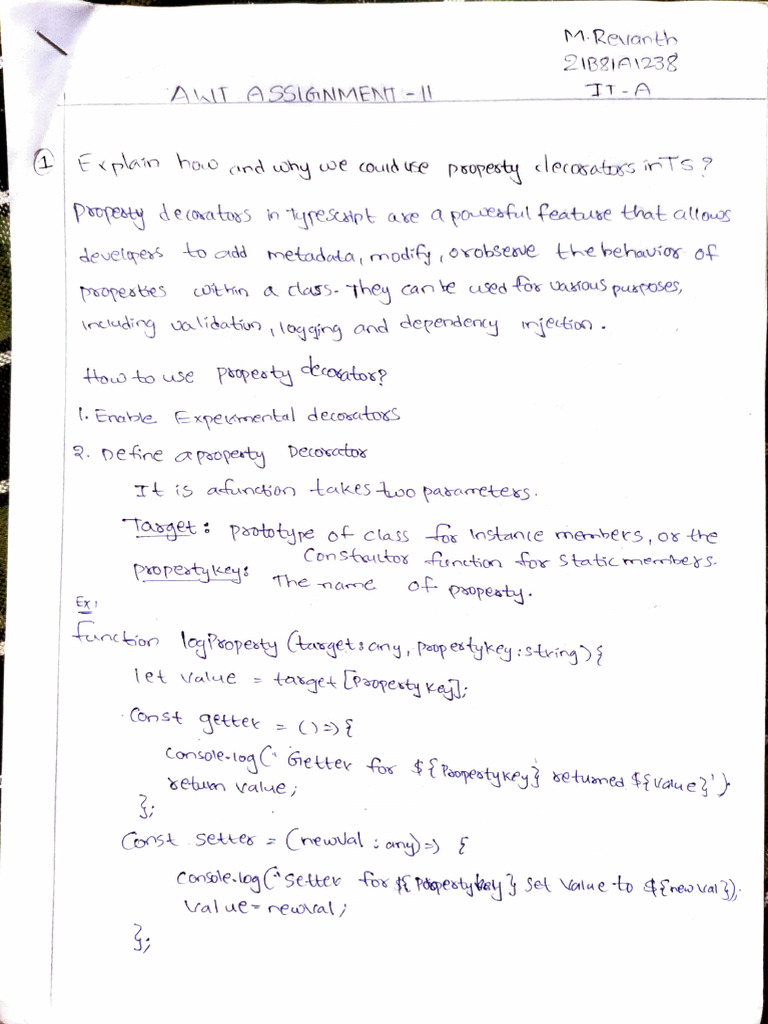 M. Revanth
21B81A1238
IT-A
AWT ASSIGNMENT-II
① Explain how and why we could use property decorators in TS?
Property decorators in Typescript are a powerful feature that allows
developers to add metadata, modify, or observe the behavior of
properties within a class. They can be used for various purposes,
including validation, logging and dependency injection.
How to use property decorator?
1. Enable Experimental decorators
2. Define a property Decorator
It is a function takes two parameters.
Target: prototype of class for instance members, or the
Constructor function for static members.
propertykey: The name of property.
Ex:
function logProperty (target: any, propertykey: string) {
let value = target [propertykey];
Const getter = () => {
Console.log (` Getter for ${Propertykey} returned ${value}`)
return value;
};
Const setter = (newval : any) => {
Console.log (`Setter for ${Propertykey} set value to ${newval});
value = newval;
};